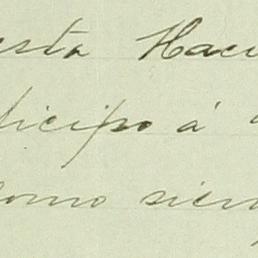 esta Haci
ticipo á
como siem